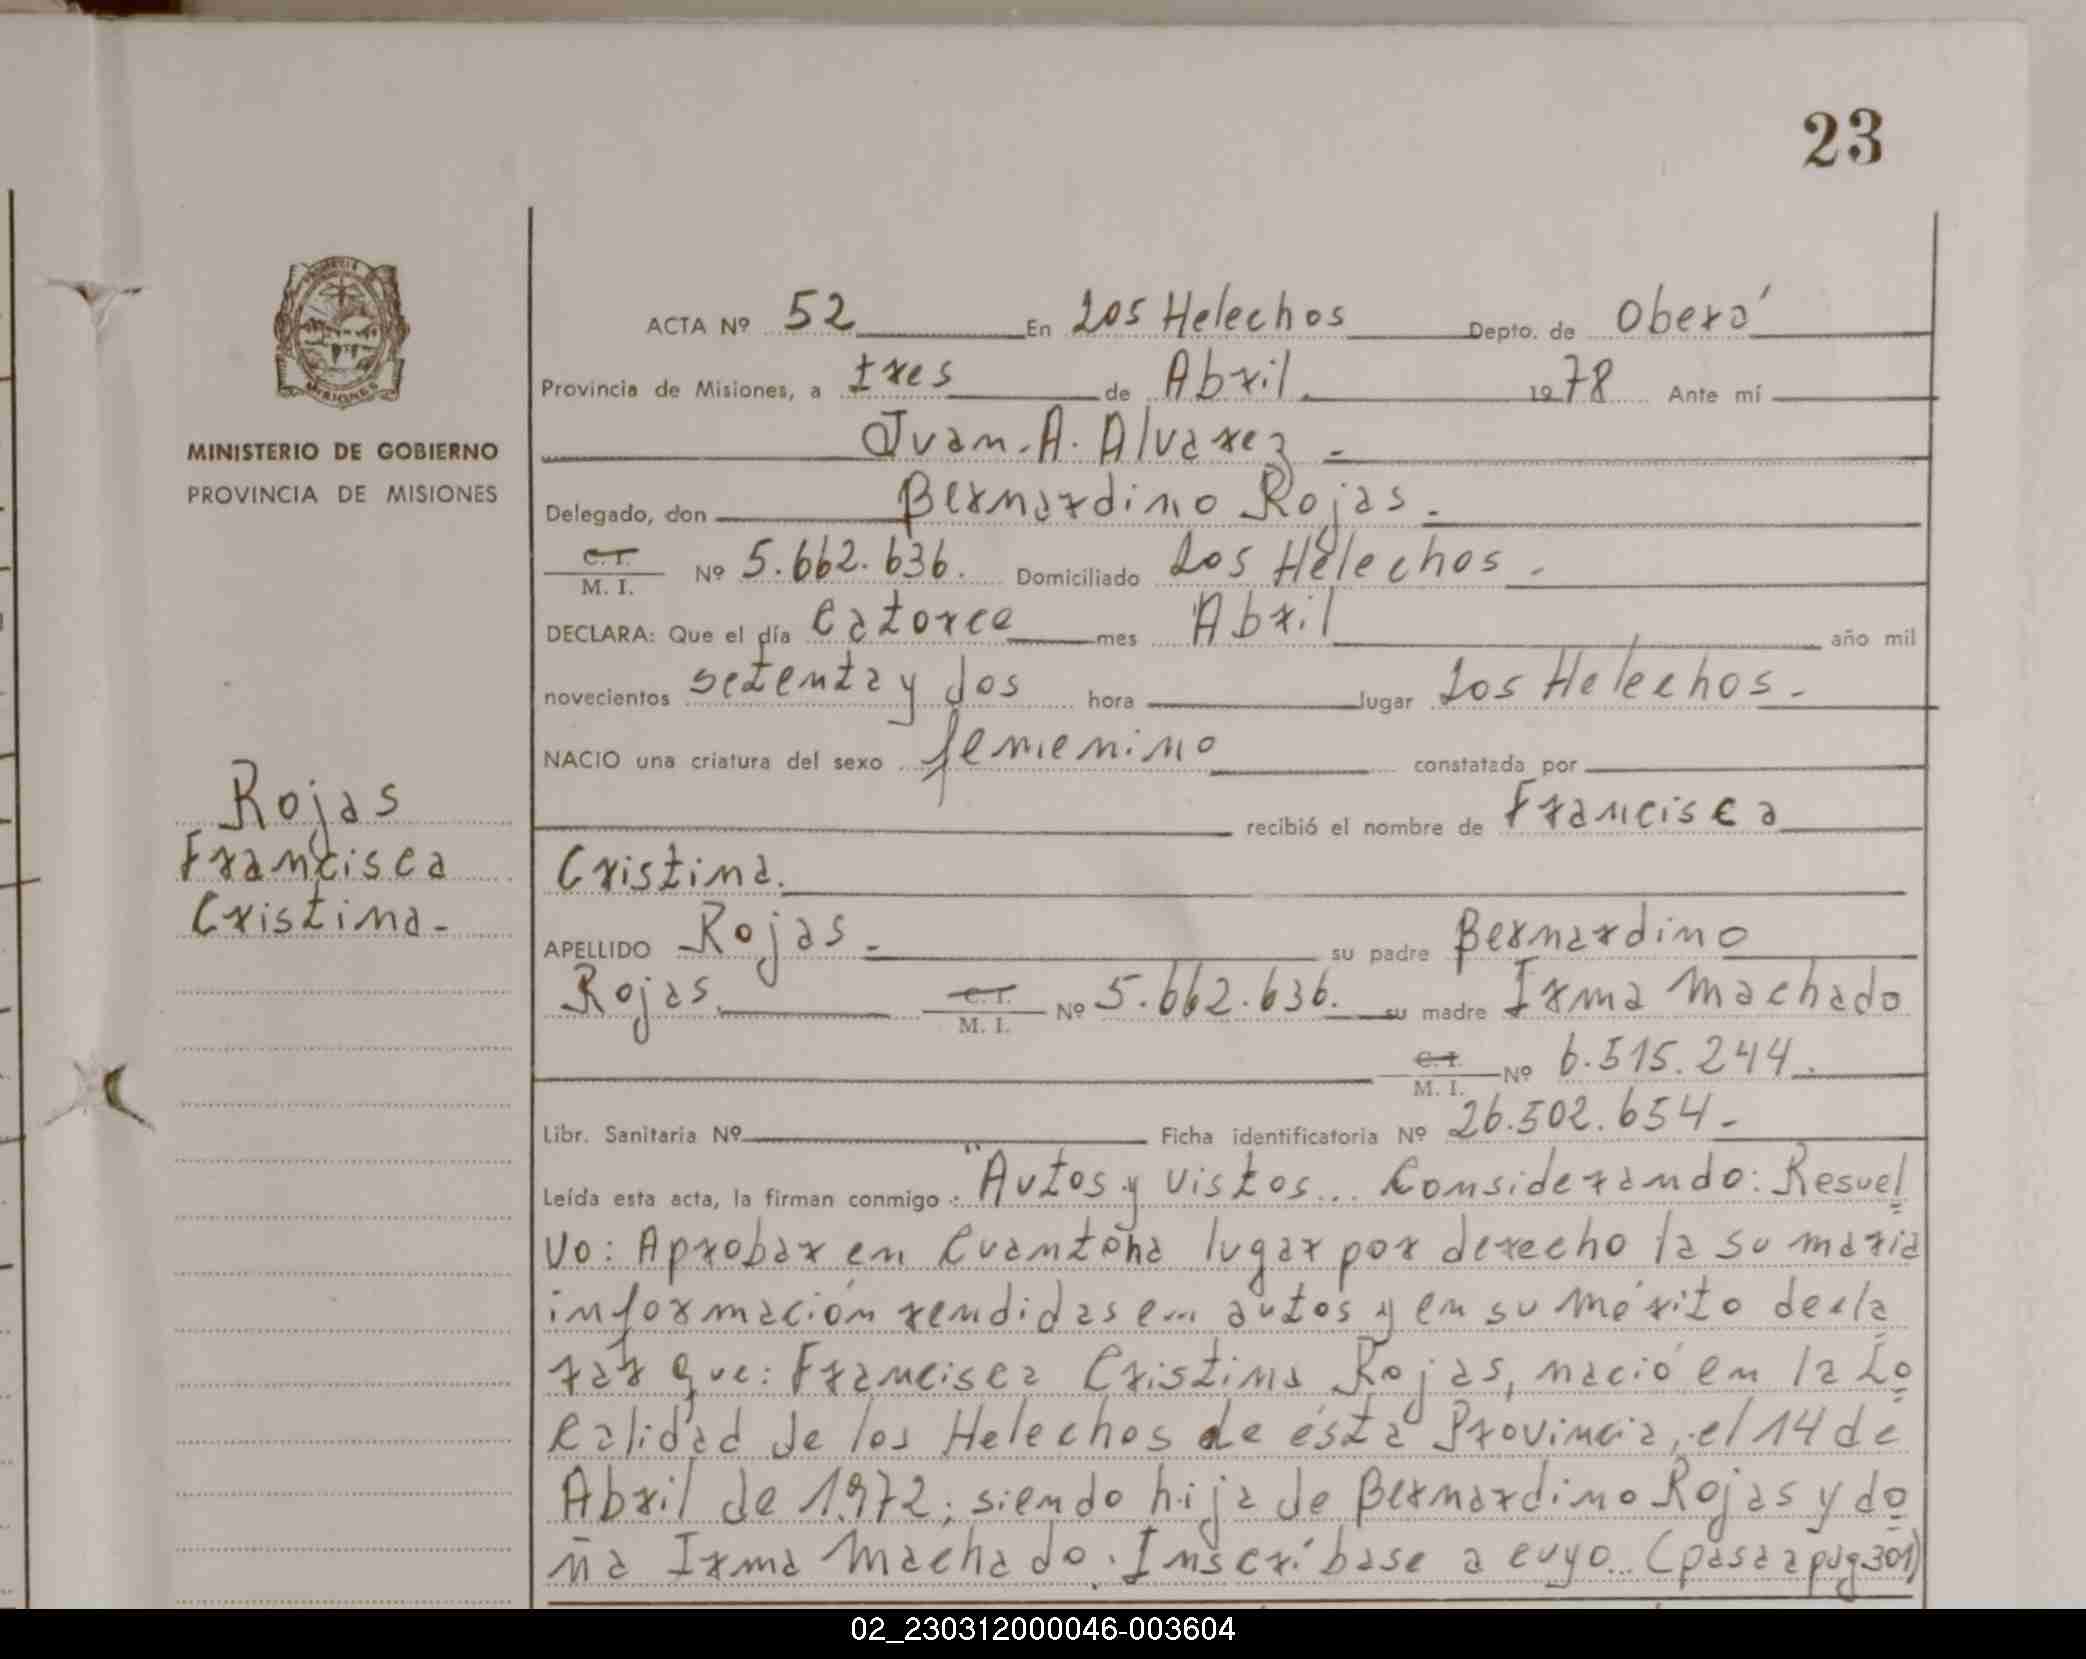 23
ACTA Nº 52 En Los Helechos Depto. de Oberá
Provincia de Misiones, a tres de Abril 1978 Ante mí
Juan. A. Alvarez -
Delegado, don Bernardino Rojas.
C. I. / M. I. Nº 5.662.636. Domiciliado Los Helechos.
DECLARA: Que el día catorce mes Abril año mil
novecientos setenta y dos hora lugar Los Helechos.-
NACIO una criatura del sexo femenino constatada por
recibió el nombre de Francisca
Cristina.
APELLIDO Rojas.- su padre Bernardino
Rojas. C. I. / M. I. Nº 5.662.636. su madre Irma Machado
C. I. / M. I. Nº 6.515.244.
Libr. Sanitaria Nº Ficha identificatoria Nº 26.502.654-
Leída esta acta, la firman conmigo: "Autos y vistos... Considerando: Resuel
vo: Aprobar en cuanto ha lugar por derecho la sumaria
información rendidas en autos y en su mérito decla
rar que: Francisca Cristina Rojas, nació en la Lo
calidad de los Helechos de ésta Provincia, el 14 de
Abril de 1.972; siendo hija de Bernardino Rojas y do
ña Irma Machado. Inscríbase a cuyo... (pasa a pag 301)
MISIONES
MINISTERIO DE GOBIERNO
PROVINCIA DE MISIONES
Rojas
Francisca
Cristina-
02_230312000046-003604